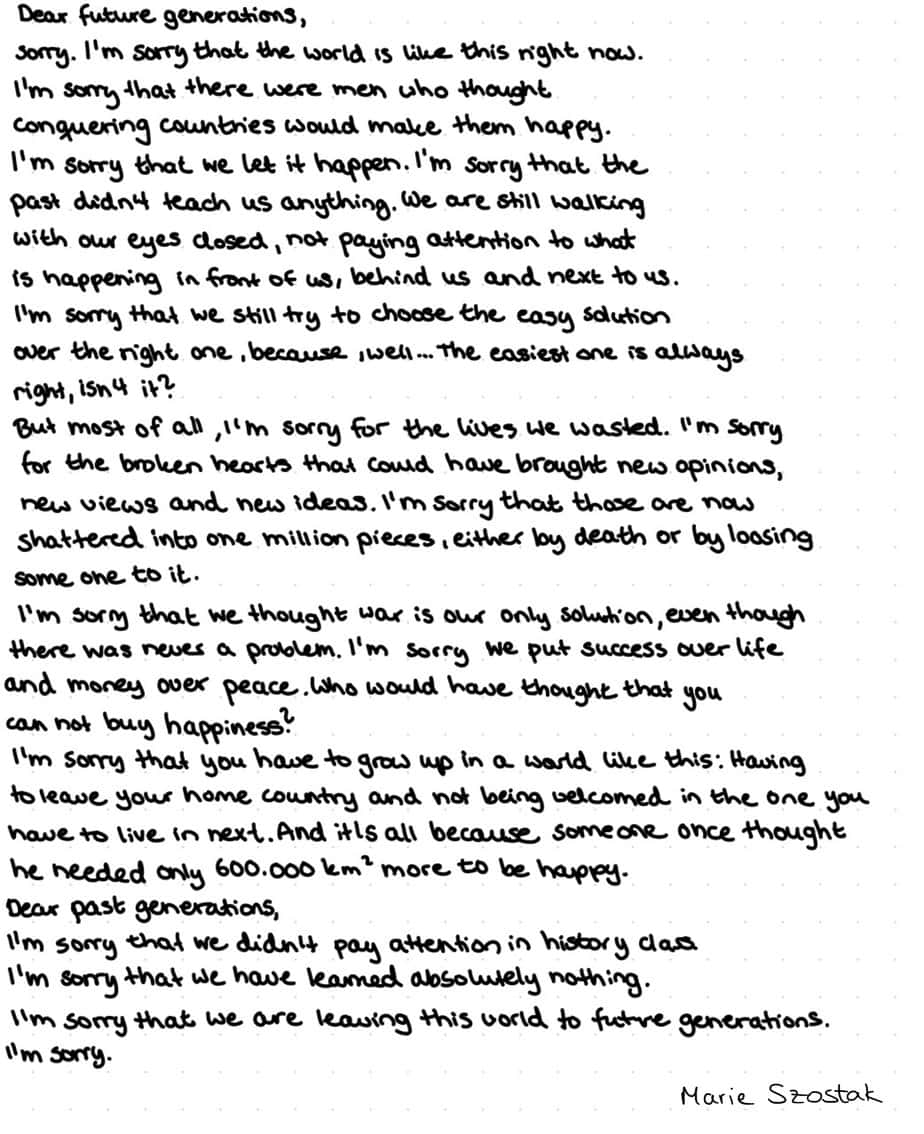 Dear future generations,
sorry. I'm sorry that the world is like this right now.
I'm sorry that there were men who thought
conquering countries would make them happy.
I'm sorry that we let it happen. I'm sorry that the
past didn't teach us anything. We are still walking
with our eyes closed, not paying attention to what
is happening in front of us, behind us and next to us.
I'm sorry that we still try to choose the easy solution
over the right one, because, well... The easiest one is always
right, isn't it?
But most of all, I'm sorry for the lives we wasted. I'm sorry
for the broken hearts that could have brought new opinions,
new views and new ideas. I'm sorry that those are now
shattered into one million pieces, either by death or by loosing
some one to it.
I'm sorry that we thought war is our only solution, even though
there was never a problem. I'm sorry we put success over life
and money over peace. Who would have thought that you
can not buy happiness?
I'm sorry that you have to grow up in a world like this: Having
to leave your home country and not being welcomed in the one you
have to live in next. And it's all because someone once thought
he needed only 600.000 km² more to be happy.
Dear past generations,
I'm sorry that we didn't pay attention in history class
I'm sorry that we have learned absolutely nothing.
I'm sorry that we are leaving this world to future generations.
I'm sorry.
Marie Szostak